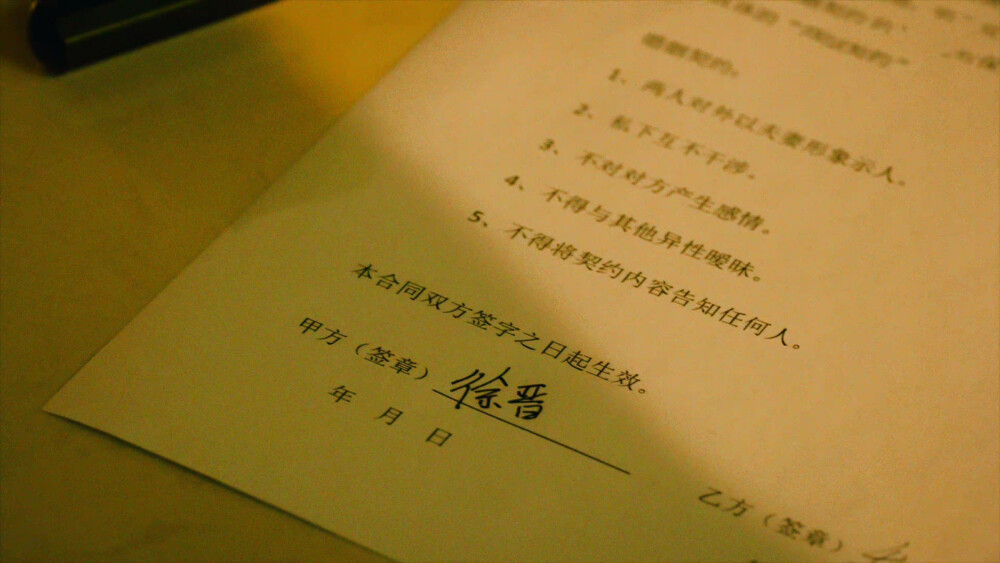 婚姻契约。
1、两人对外以夫妻形象示人。
2、私下互不干涉。
3、不对对方产生感情。
4、不得与其他异性暧昧。
5、不得将契约内容告知任何人。
本合同双方签字之日起生效。
甲方（签章）徐晋
年 月 日
乙方（签章）